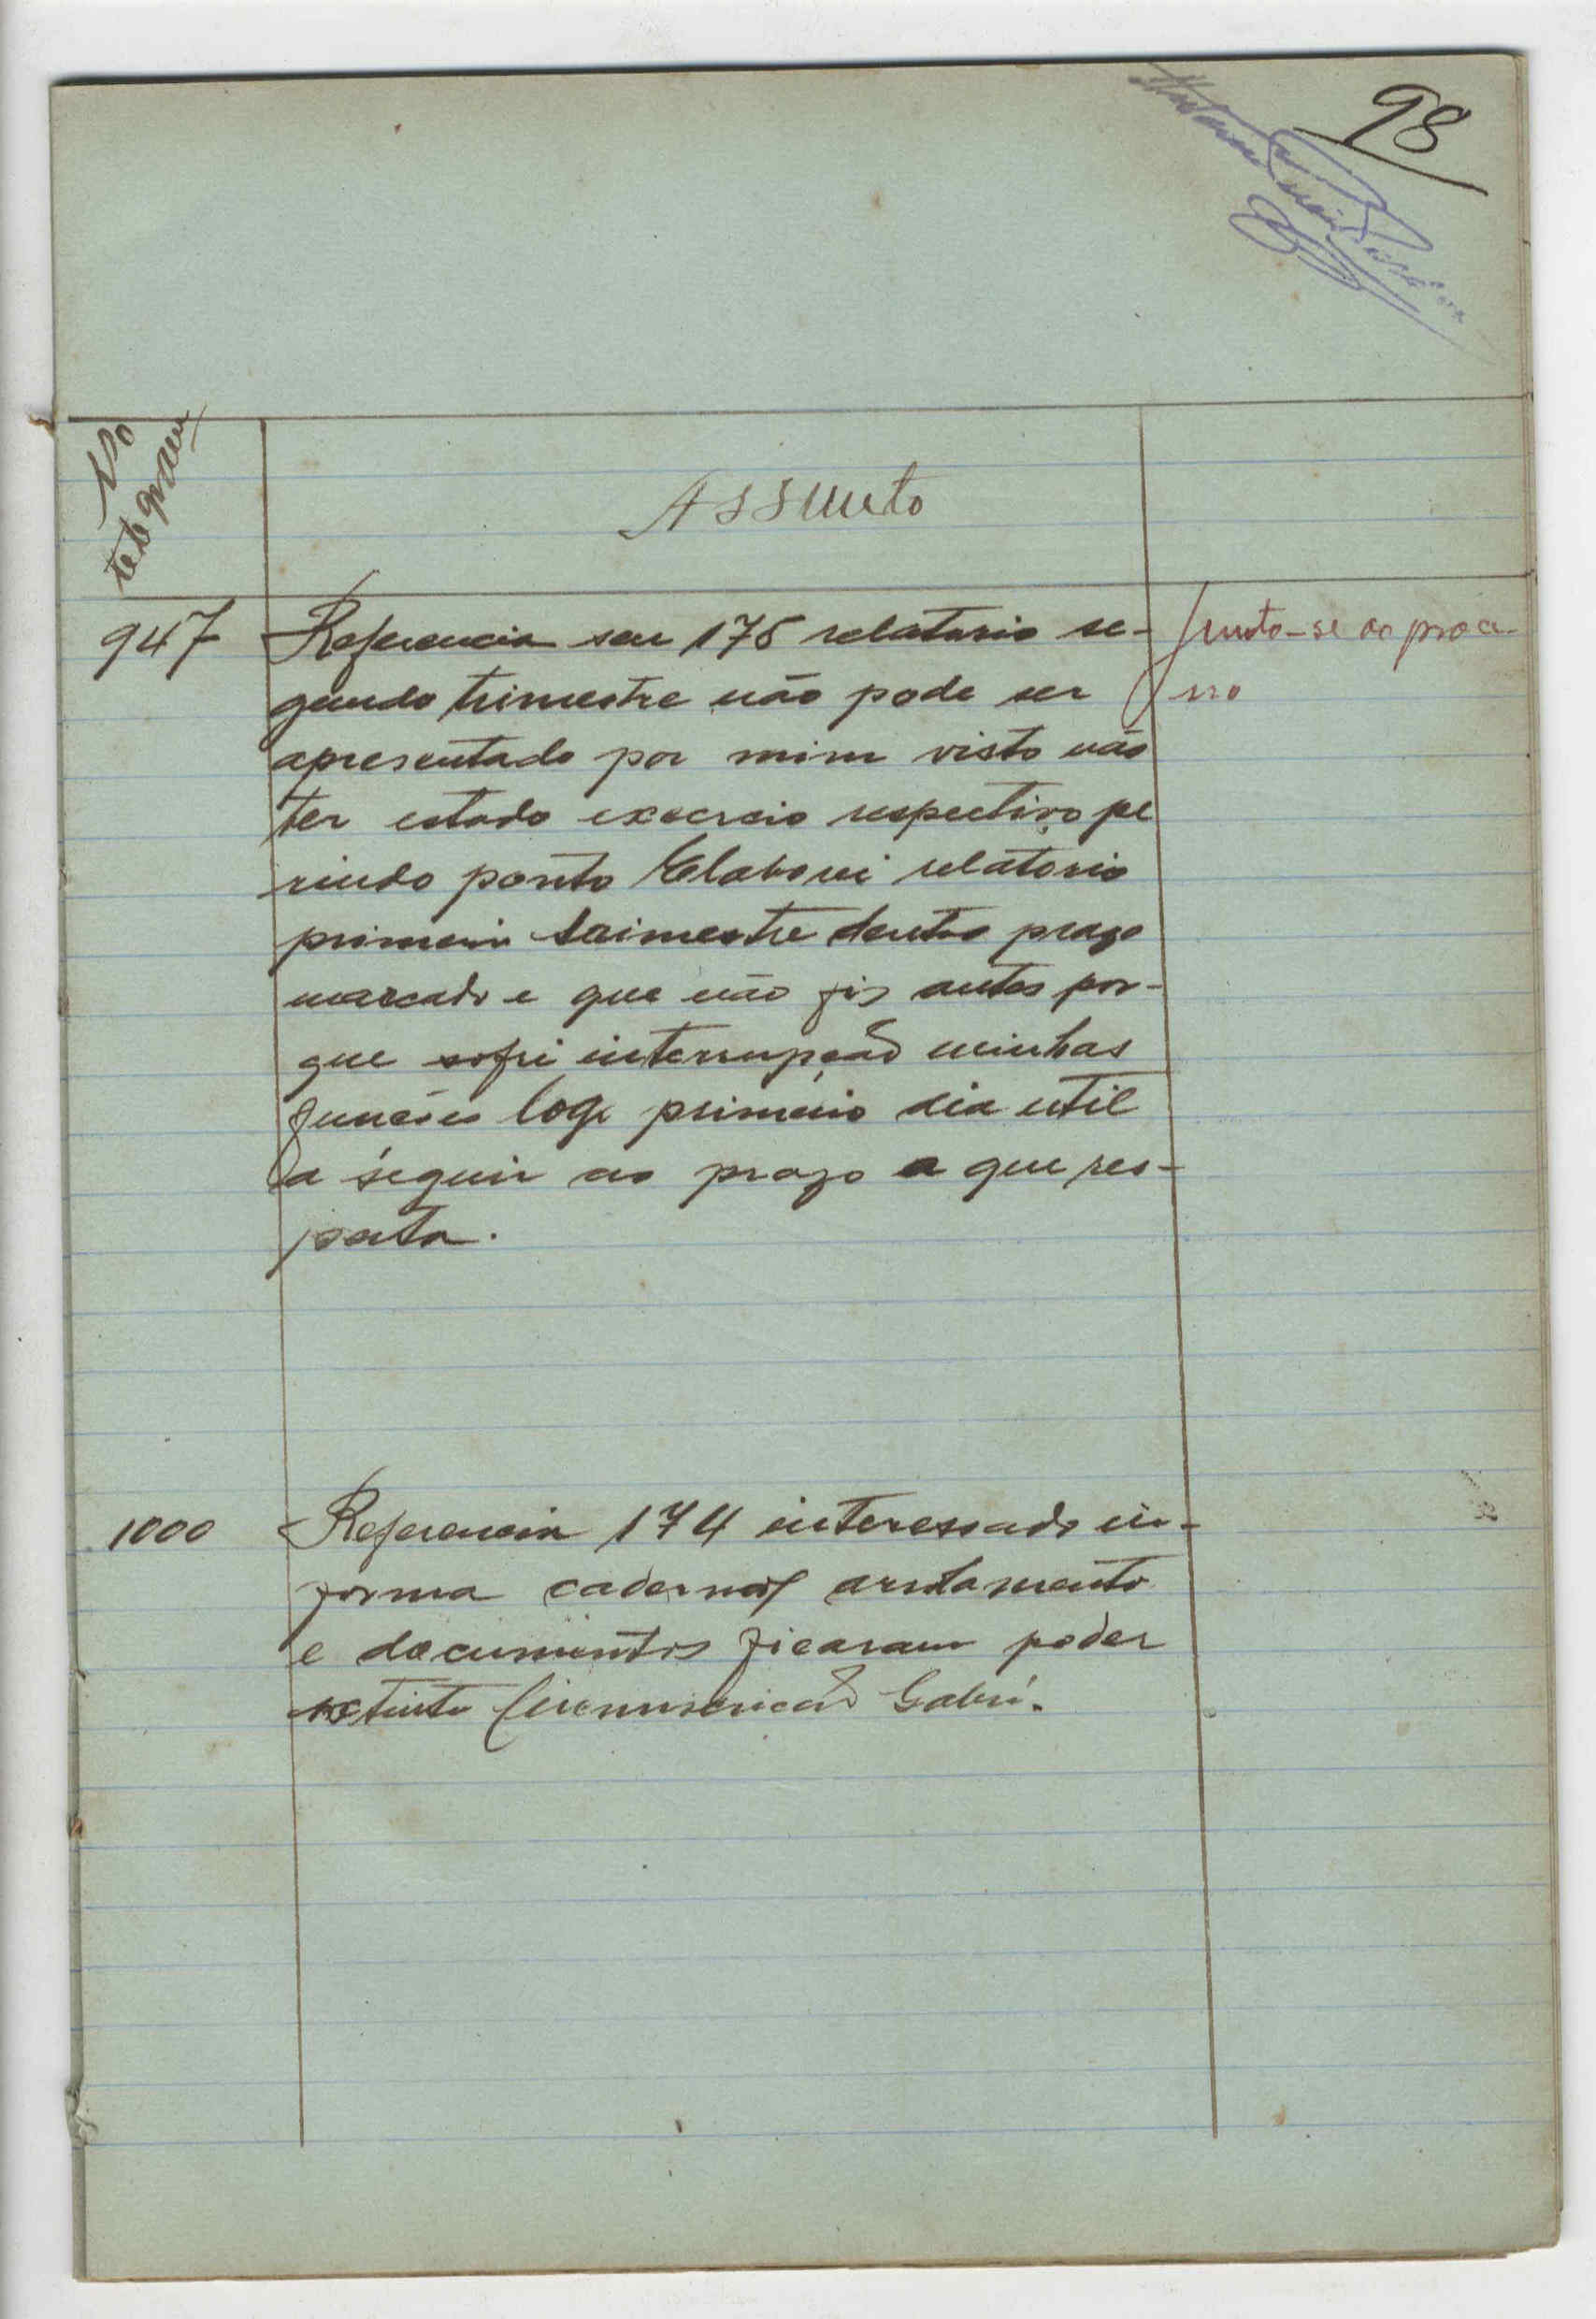 98
No
telegram
Assunto
947
Referencia seu 175 relatorio se-
gundo trimestre não pode ser
apresentado por mim visto não
ter estado exercicio respectivo pe
riodo ponto Elaborei relatorio
primeiro trimestre dentro prazo
marcado e que não fis antes por-
que sofri interrupção minhas
funcões logo primeiro dia util
a seguir ao prazo a que res-
peita.
Junte-se ao proce-
sso
1000
Referencia 174 interessado in-
forma cadernos arrolamento
e documentos ficaram poder
extinta Circunscricão Gabú.